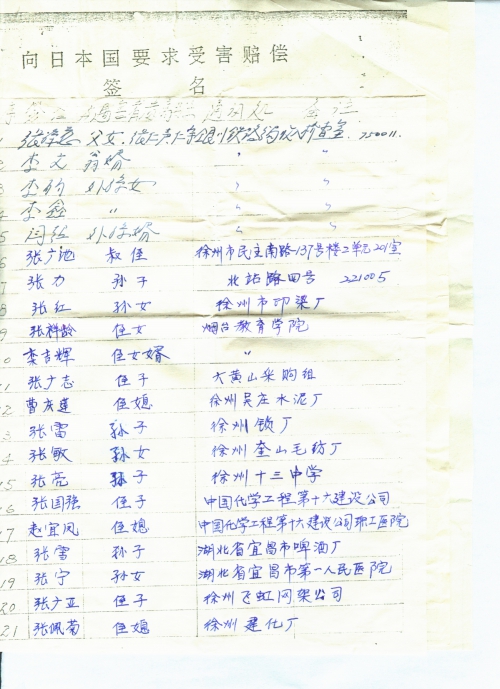 向日本国要求受害赔偿
签 名
1 父女, 750011.
2 李文 翁婿 〃 〃
3 外孙女 〃 〃
4 李鑫 〃 〃 〃
5 闫 外孙婿 〃 〃
6 张广地 叔侄 徐州市民主南路137号楼2单元201室
7 张力 孙子 北站路四号 221005
8 张红 孙女 徐州市印染厂
9 张祥龄 侄女 烟台教育学院
0 栾吉辉 侄女婿 〃
1 张广志 侄子 大黄山采购组
2 曹庆莲 侄媳 徐州吴庄水泥厂
3 张雷 孙子 徐州锁厂
4 张敏 孙女 徐州奎山毛纺厂
5 张亮 孙子 徐州十三中学
6 张国强 侄子 中国化学工程第十六建设公司
7 赵宜凤 侄媳 中国化学工程第十六建设公司职工医院
18 张雪 孙子 湖北省宜昌市啤酒厂
19 张宁 孙女 湖北省宜昌市第一人民医院
20 张广亚 侄子 徐州飞虹网架公司
21 张佩菊 侄媳 徐州建化厂